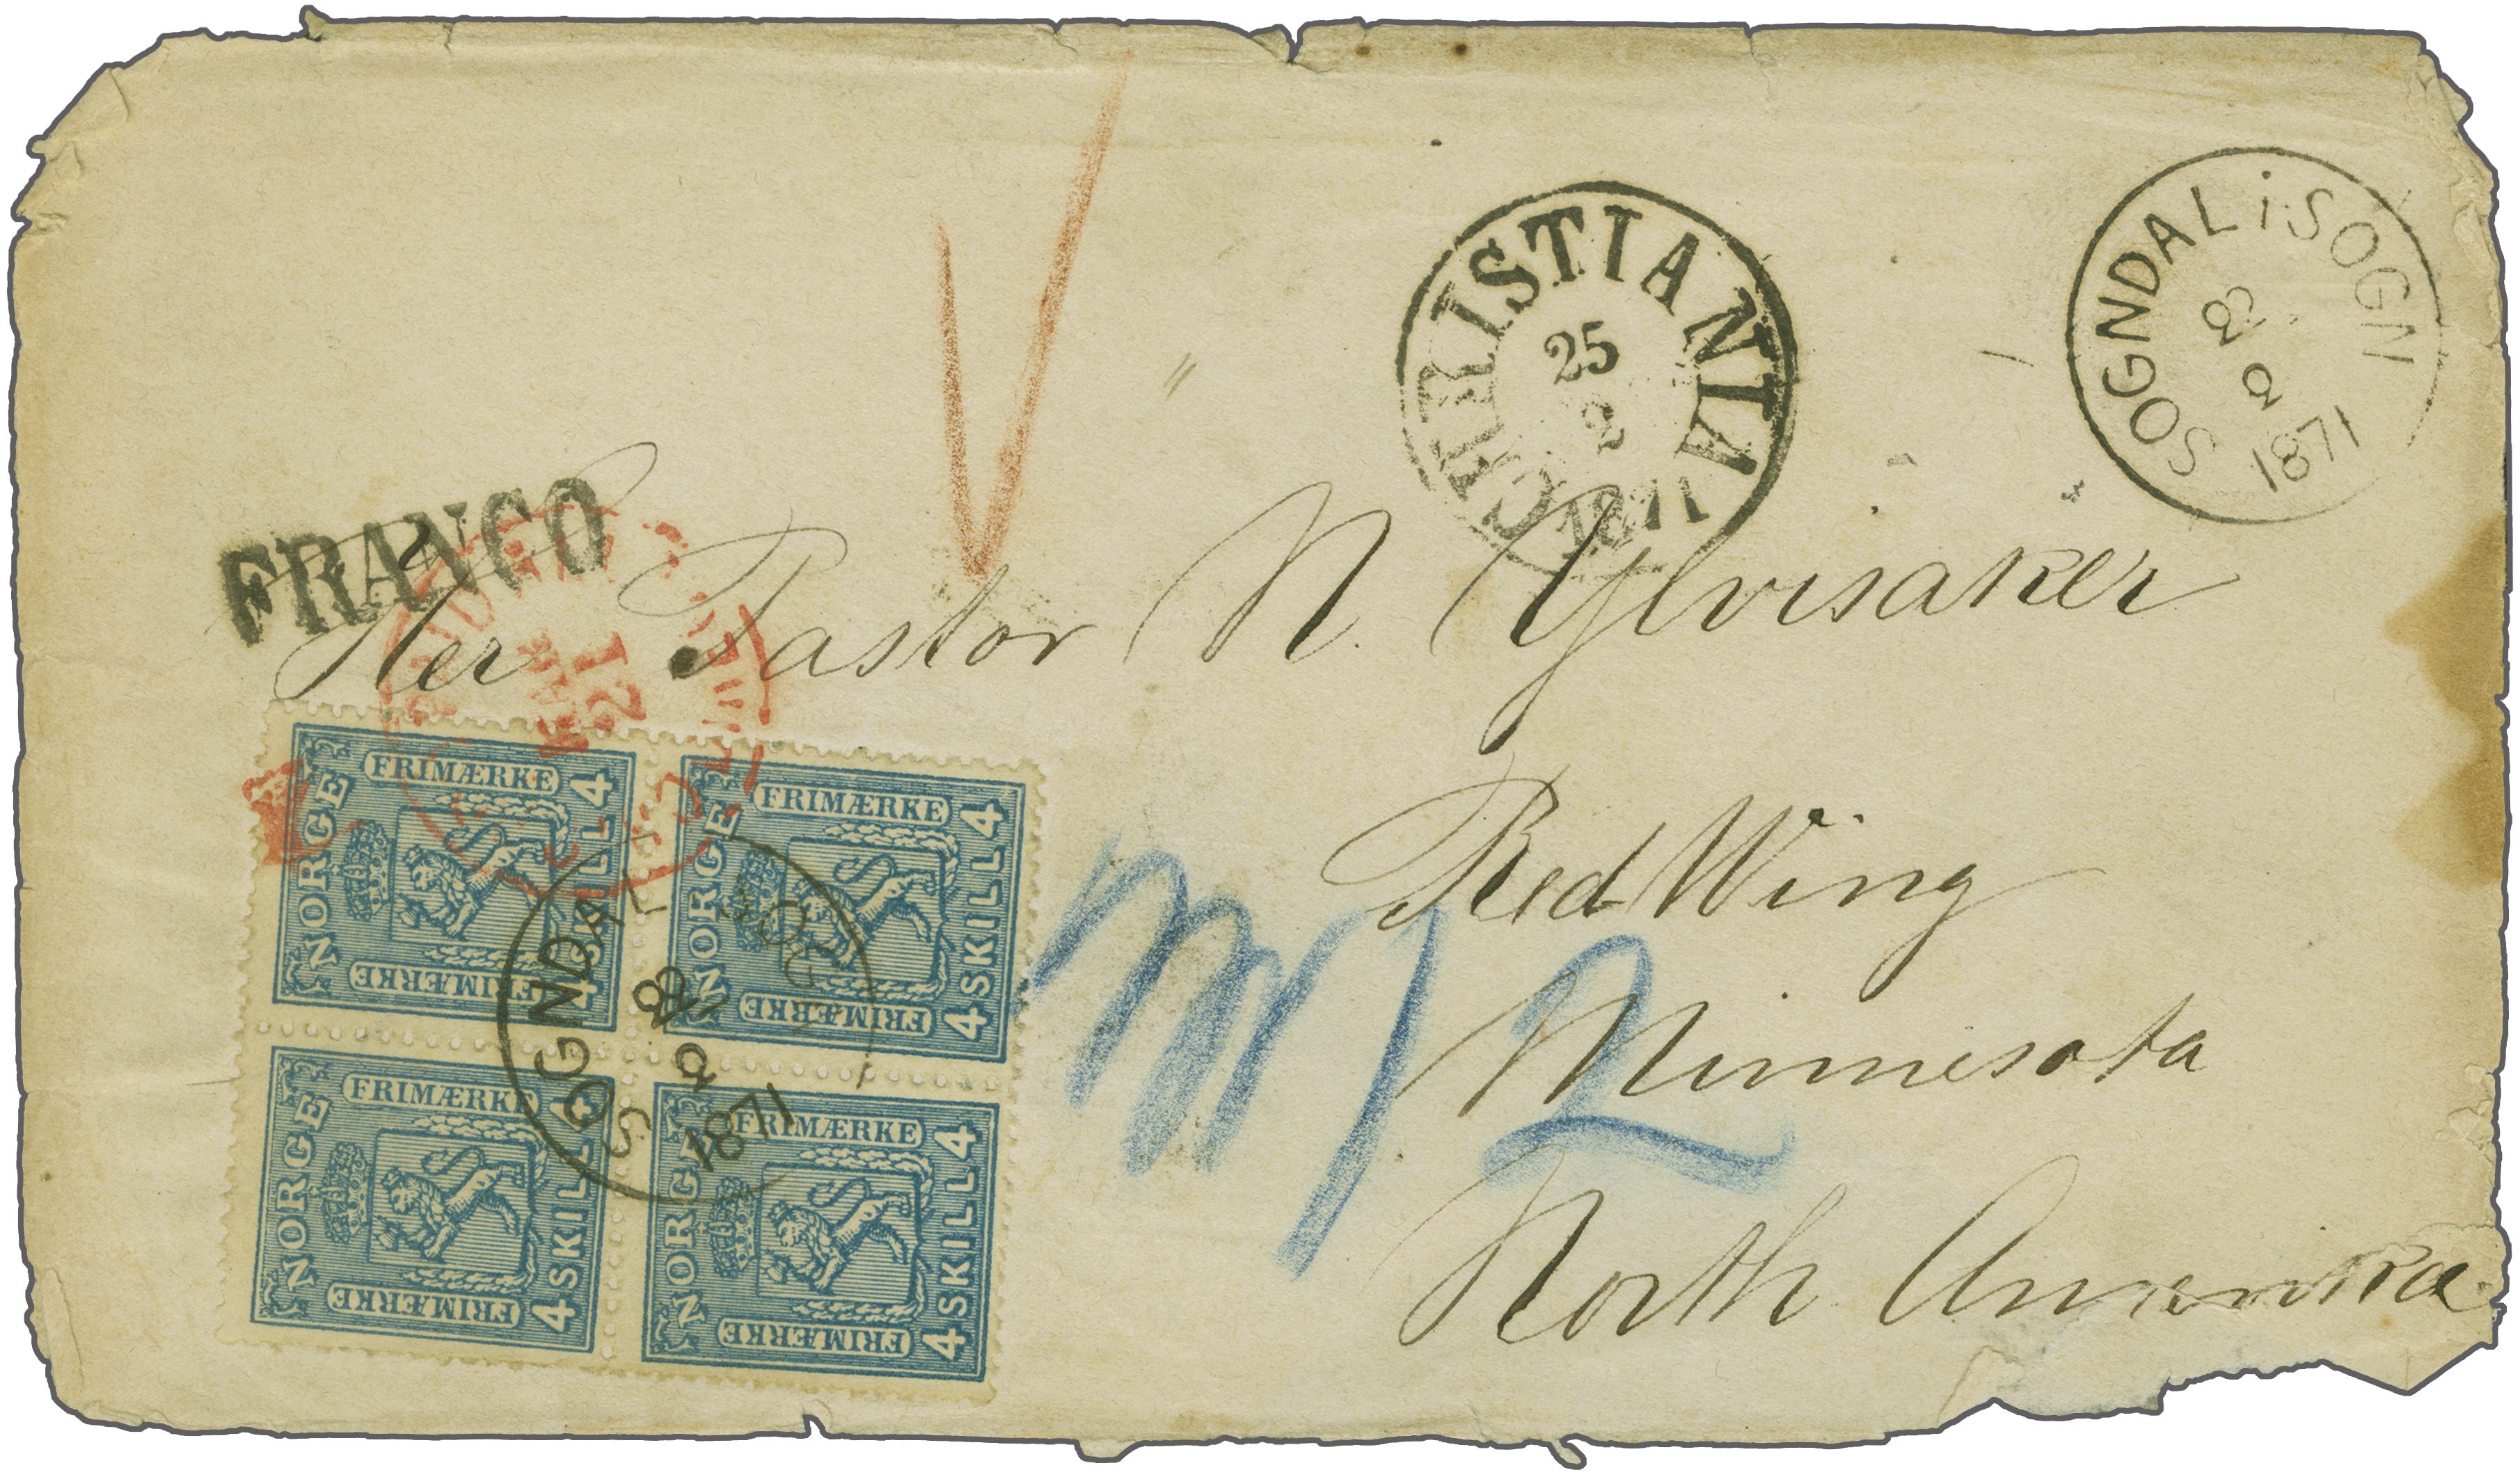 CHRISTIANIA
25
2
1871
SOGNDAL i SOGN
2
1871
FRANCO
Her Pastor N. Ylvisaker
Red Wing
Minnesota
North Amerika
21
FRIMÆRKE
NORGE
4 SKILL 4
FRIMÆRKE
FRIMÆRKE
NORGE
4 SKILL 4
FRIMÆRKE
FRIMÆRKE
NORGE
4 SKILL 4
FRIMÆRKE
FRIMÆRKE
NORGE
4 SKILL 4
FRIMÆRKE
SOGNDAL i SOGN
2
1871
2